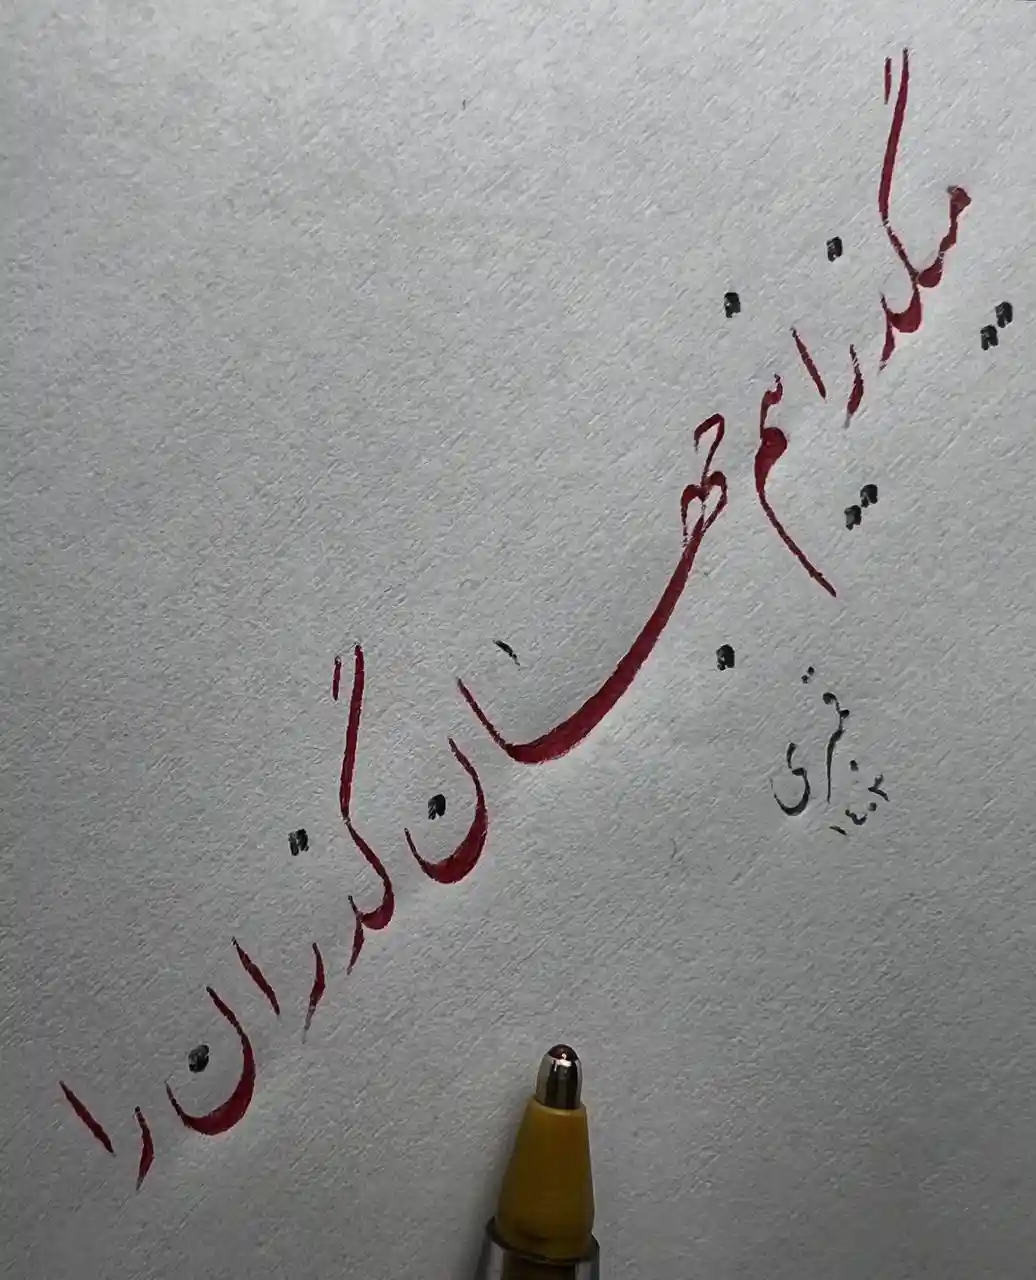 میگذرانیم جهان گذران را
قنبری
۱۴۰۲